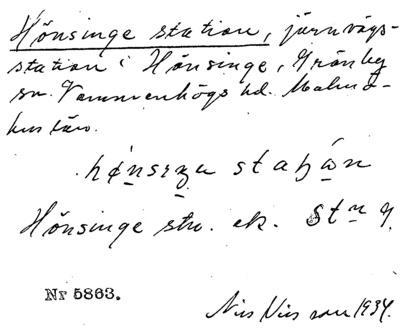 Hönsinge station, järnvägs-
station i Hönsinge, Grönby
sn. Vemmenhögs hd. Malmö-
hus län.
Hönsinge stn. ek. Stn 4.
Nr 5863.
Nils Nilsson 1934.